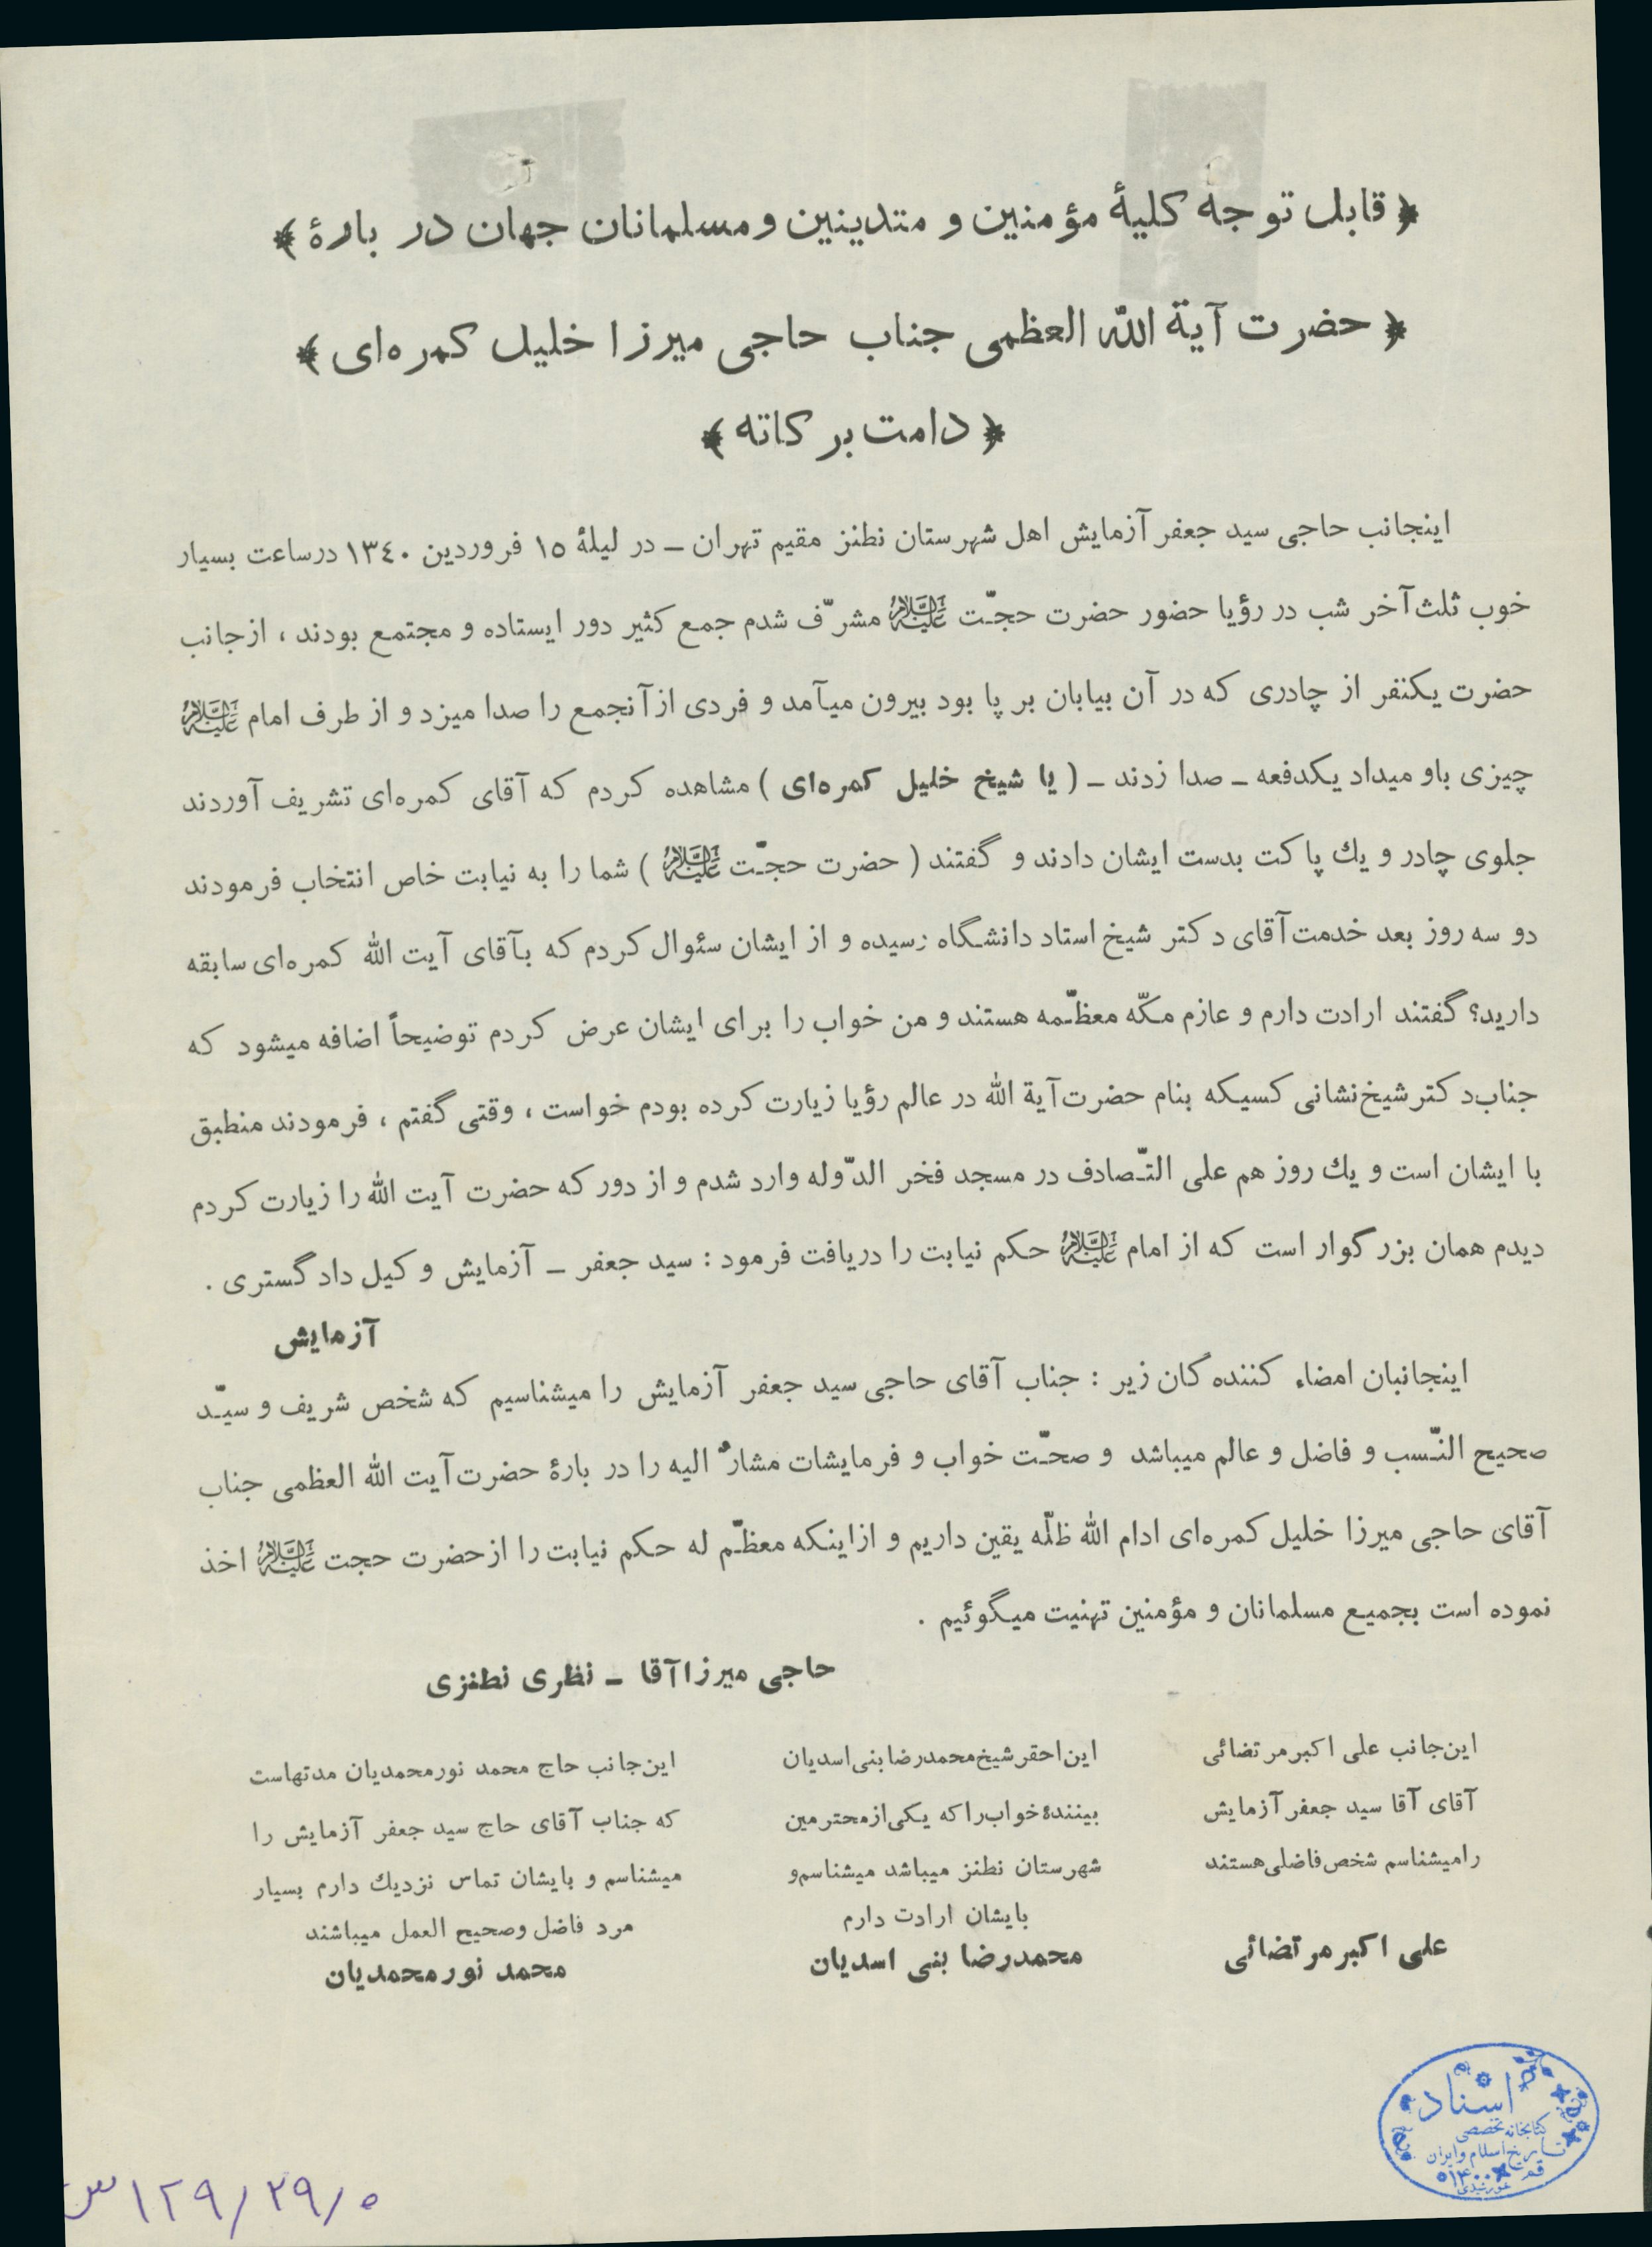 ﴿ قابل توجه کلیهٔ مؤمنین و متدینین ومسلمانان جهان در بارهٔ ﴾
﴿ حضرت آیة الله العظمی جناب حاجی میرزا خلیل کمره‌ای ﴾
﴿ دامت برکاته ﴾
اینجانب حاجی سید جعفر آزمایش اهل شهرستان نطنز مقیم تهران ـ در لیلهٔ ۱۵ فروردین ۱۳٤۰ درساعت بسیار
خوب ثلث آخر شب در رؤیا حضور حضرت حجّت علیه‌السلام مشرّف شدم جمع کثیر دور ایستاده و مجتمع بودند ، ازجانب
حضرت یکنفر از چادری که در آن بیابان بر پا بود بیرون میآمد و فردی ازآنجمع را صدا میزد و از طرف امام علیه‌السلام
چیزی باو میداد یکدفعه ـ صدا زدند ـ ( یا شیخ خلیل کمره‌ای ) مشاهده کردم که آقای کمره‌ای تشریف آوردند
جلوی چادر و یك پاکت بدست ایشان دادند و گفتند ( حضرت حجّت علیه‌السلام ) شما را به نیابت خاص انتخاب فرمودند
دو سه روز بعد خدمت آقای دکتر شیخ استاد دانشگاه رسیده و از ایشان سئوال کردم که بآقای آیت الله کمره‌ای سابقه
دارید؟ گفتند ارادت دارم و عازم مکّه معظّمه هستند و من خواب را برای ایشان عرض کردم توضیحاً اضافه میشود که
جناب دکتر شیخ نشانی کسیکه بنام حضرت آیة الله در عالم رؤیا زیارت کرده بودم خواست ، وقتی گفتم ، فرمودند منطبق
با ایشان است و یك روز هم علی التّصادف در مسجد فخر الدّوله وارد شدم و از دور که حضرت آیت الله را زیارت کردم
دیدم همان بزرگوار است که از امام علیه‌السلام حکم نیابت را دریافت فرمود : سید جعفر ـ آزمایش وکیل دادگستری .
آزمایش
اینجانبان امضاء کننده گان زیر : جناب آقای حاجی سید جعفر آزمایش را میشناسیم که شخص شریف و سیّد
صحیح النّسب و فاضل و عالم میباشد و صحّت خواب و فرمایشات مشارٌ الیه را در بارهٔ حضرت آیت الله العظمی جناب
آقای حاجی میرزا خلیل کمره‌ای ادام الله ظلّه یقین داریم و ازاینکه معظّم له حکم نیابت را ازحضرت حجت علیه‌السلام اخذ
نموده است بجمیع مسلمانان و مؤمنین تهنیت میگوئیم .
حاجی میرزاآقا ـ نظری نطنزی
این‌جانب علی اکبر مرتضائی
آقای آقا سید جعفر آزمایش
رامیشناسم شخص فاضلی هستند
علی اکبر مرتضائی
این احقر شیخ محمدرضا بنی اسدیان
بینندهٔ خواب را که یکی از محترمین
شهرستان نطنز میباشد میشناسم و
بایشان ارادت دارم
محمدرضا بنی اسدیان
این‌جانب حاج محمد نورمحمدیان مدتهاست
که جناب آقای حاج سید جعفر آزمایش را
میشناسم و بایشان تماس نزدیك دارم بسیار
مرد فاضل وصحیح العمل میباشند
محمد نورمحمدیان
اسناد
کتابخانه تخصصی
تاریخ اسلام و ایران
قم
۱۲۹/۲۹/۰